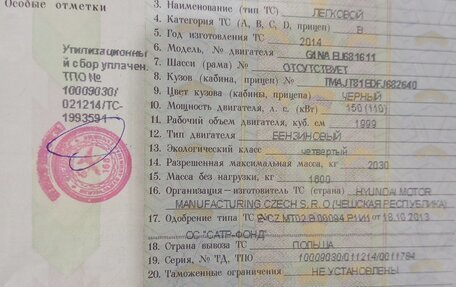 Особые отметки
Утилизационны
й сбор уплачен.
ТПО №
10009030/
021214/ТС-
1993591
3. Наименование (тип ТС) ЛЕГКОВОЙ
4. Категория ТС (А, В, С, D, прицеп) B
5. Год изготовления ТС 2014
6. Модель, № двигателя G4NA EU681611
7. Шасси (рама) № ОТСУТСТВУЕТ
8. Кузов (кабина, прицеп) № TMAJT81EDFJ682640
9. Цвет кузова (кабины, прицепа) ЧЕРНЫЙ
10. Мощность двигателя, л. с. (кВт) 150 (110)
11. Рабочий объем двигателя, куб. см 1999
12. Тип двигателя БЕНЗИНОВЫЙ
13. Экологический класс четвертый
14. Разрешенная максимальная масса, кг 2030
15. Масса без нагрузки, кг 1600
16. Организация—изготовитель ТС (страна) HYUNDAI MOTOR
MANUFACTURING CZECH S. R. O (ЧЕШСКАЯ РЕСПУБЛИКА)
17. Одобрение типа ТС № от 18.10.2013
ОС "САТР-ФОНД"
18. Страна вывоза ТС ПОЛЬША
19. Серия, № ТД, ТПО 10009030/011214/0011784
20. Таможенные ограничения НЕ УСТАНОВЛЕНЫ